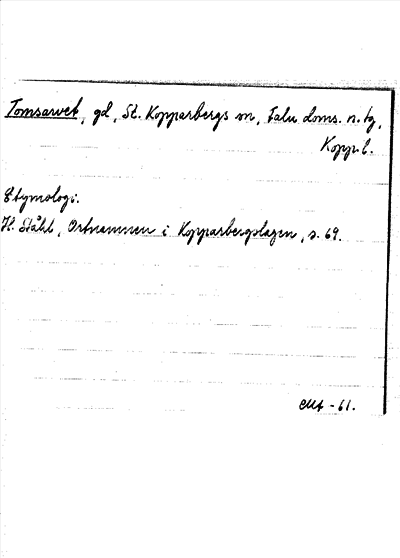 Tomsarvet, gd, St. Kopparbergs sn, Falu doms. n. tg,
Kopp.l.
Etymologi.
H. Ståhl, Ortnamnen i Kopparbergslagen, s. 69.
-61.